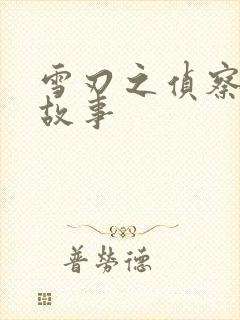 雪刃之偵察
故事
普勞德